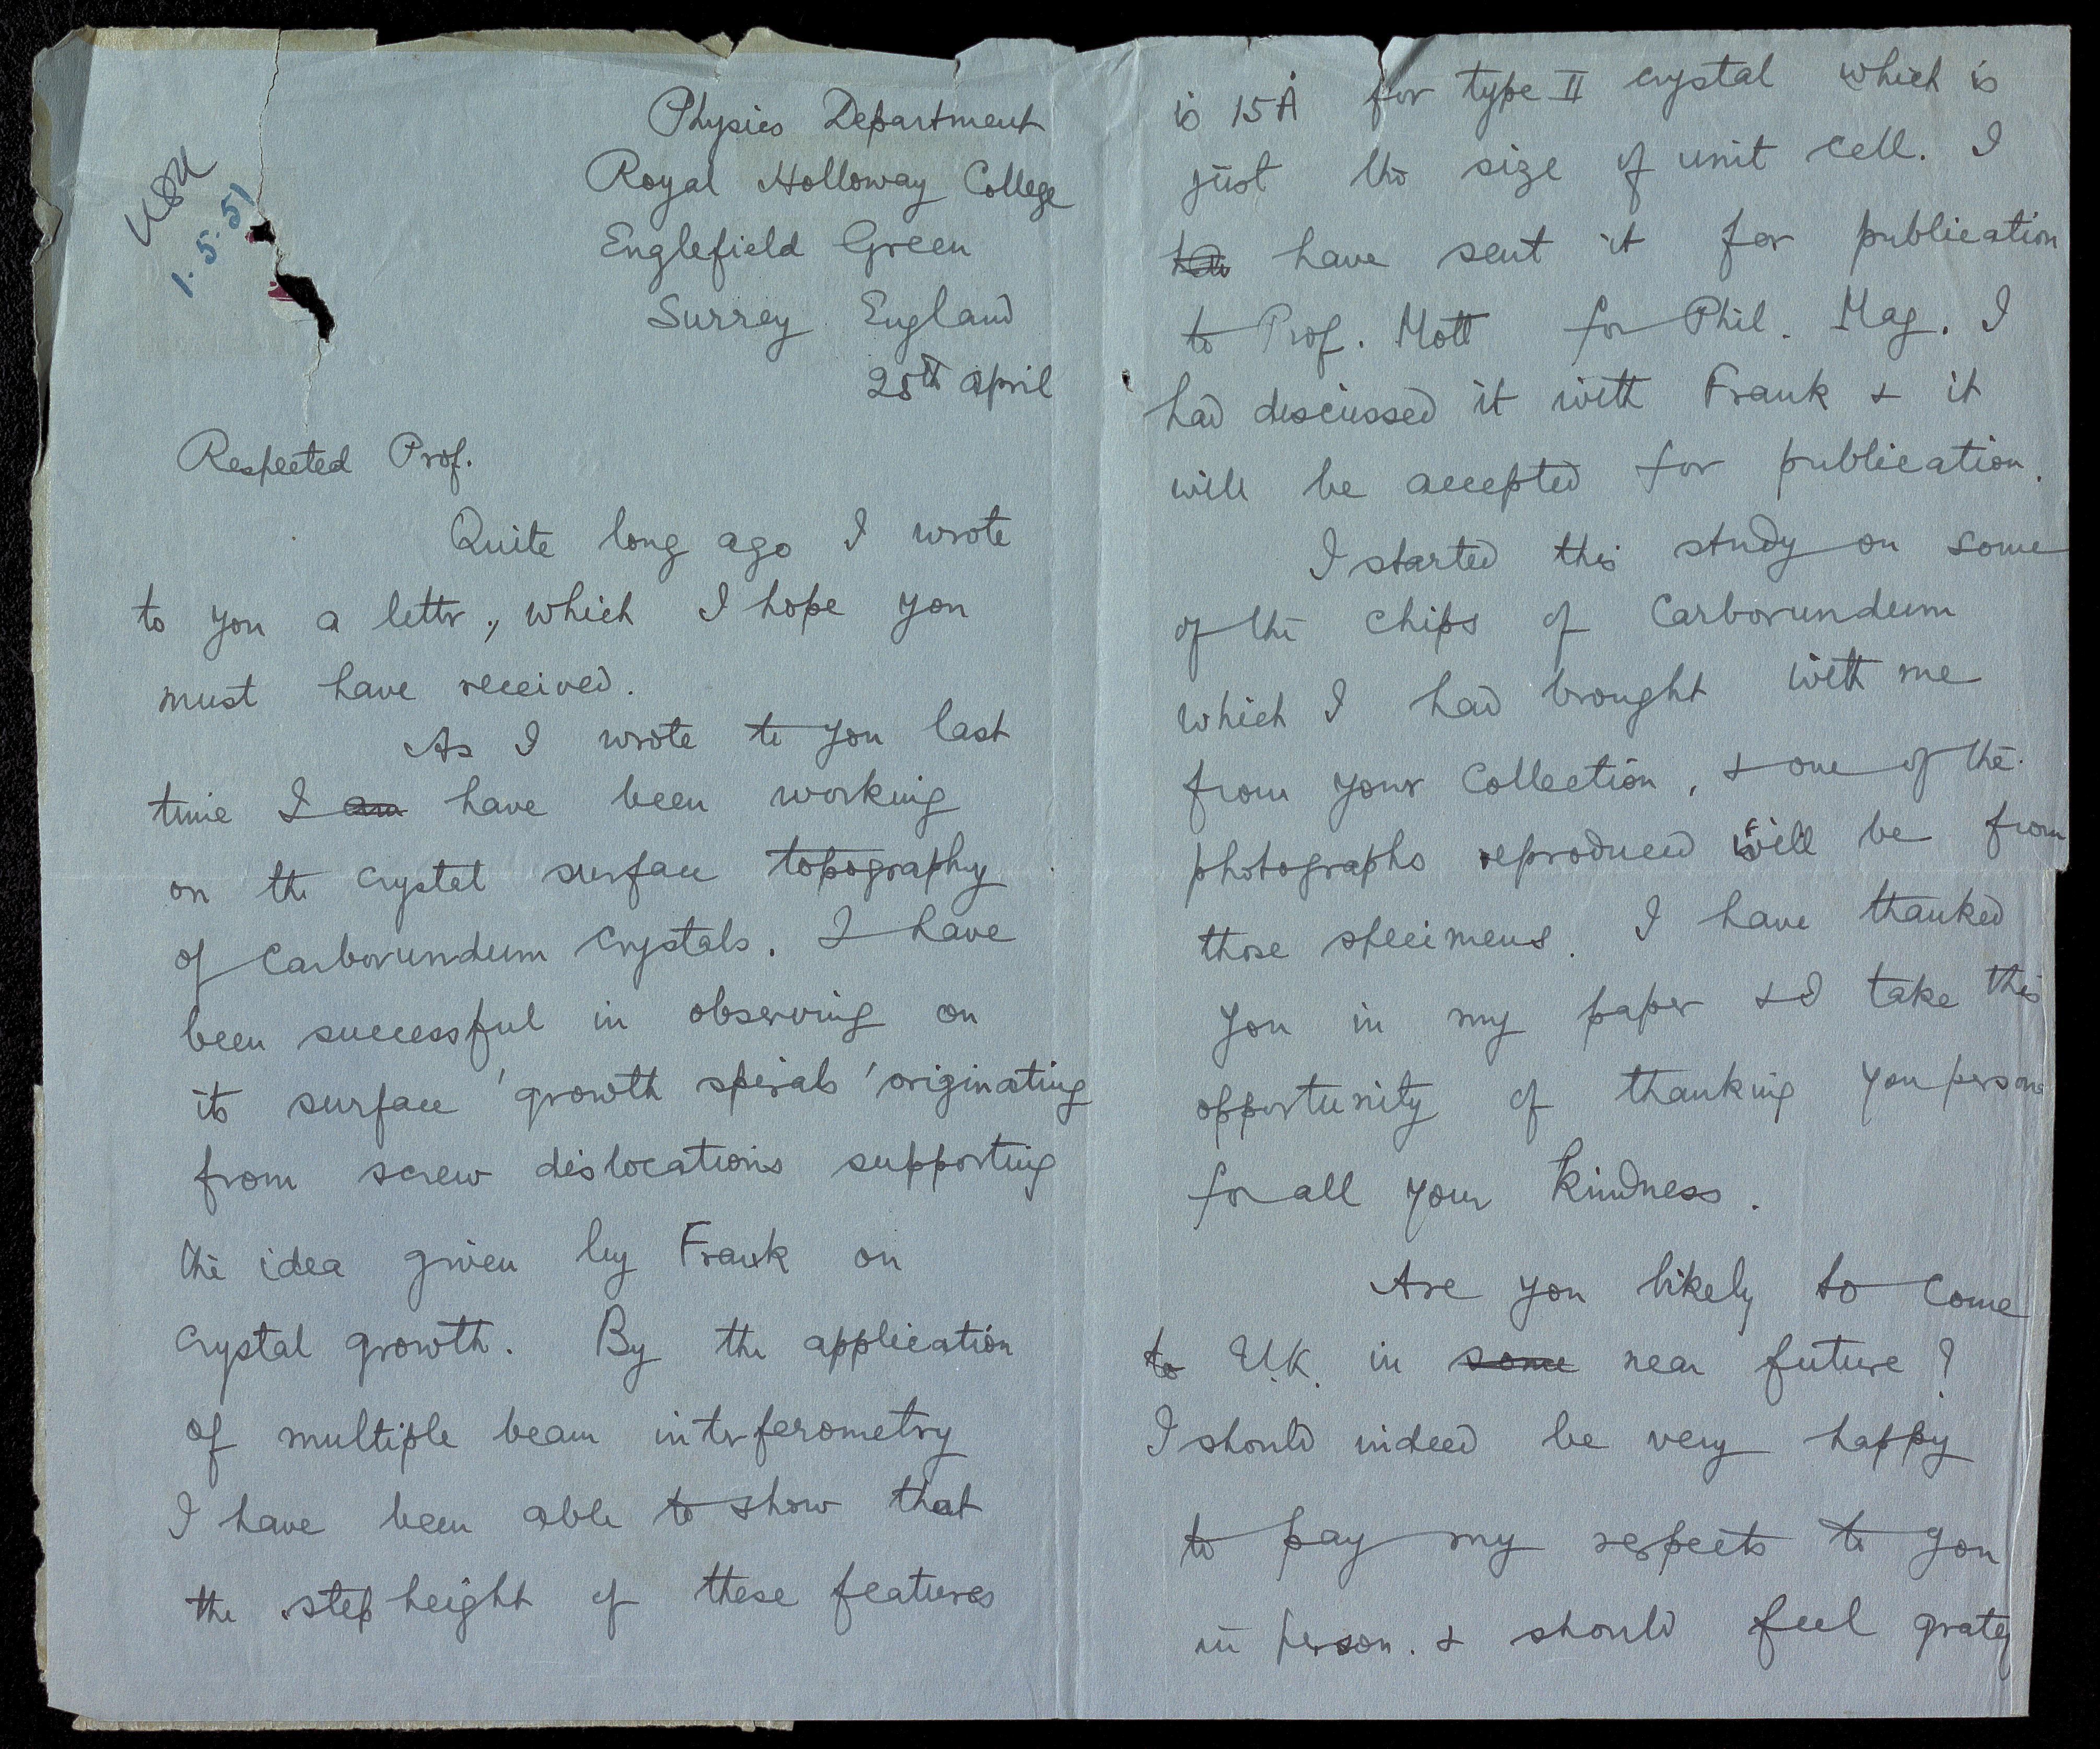 1.5.51
Physics Department
Royal Holloway College
Englefield Green
Surrey England
25th April
Respected Prof.
Quite long ago I wrote
to you a lettr, which I hope you
must have received.
As I wrote to you last
time I am have been working
on the crystal surface topography
of Carborundum crystals. I have
been successful in observing on
its surface 'growth spirals' originating
from screw dislocations supporting
the idea given by Frank on
crystal growth. By the application
of multiple beam intrferometry
I have been able to show that
the step height of these features
is 15Å for type II crystal which is
just the size of unit cell. I
have sent it for publication
to Prof. Mott for Phil. Mag. I
had discussed it with Frank & it
will be accepted for publication.
I started this study on some
of the chips of Carborundum
which I had brought with me
from your collection, & one of the
photographs reproduced will be from
those specimens. I have thanked
you in my paper & I take this
opportunity of thanking you person
for all your kindness.
Are you likely to come
to U.K. in some near future?
I should indeed be very happy
to pay my respects to you
in person. & should feel gratef